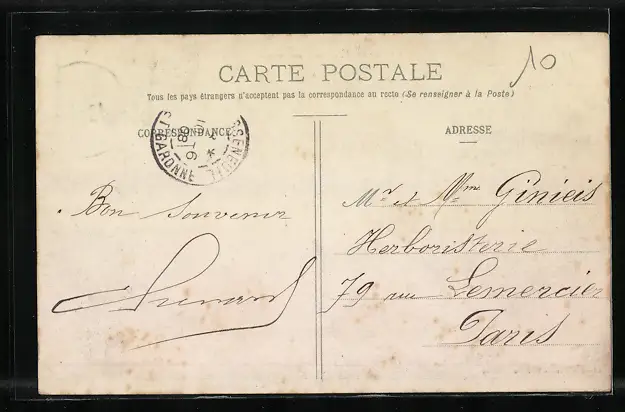 10
CARTE POSTALE
Tous les pays étrangers n'acceptent pas la correspondance au recto (Se renseigner à la Poste)
CORRESPONDANCE
ADRESSE
T-GARONNE
Bon souvenir
Mr et Mme Ginieis
Herboristerie
79 rue Lemercier
Paris